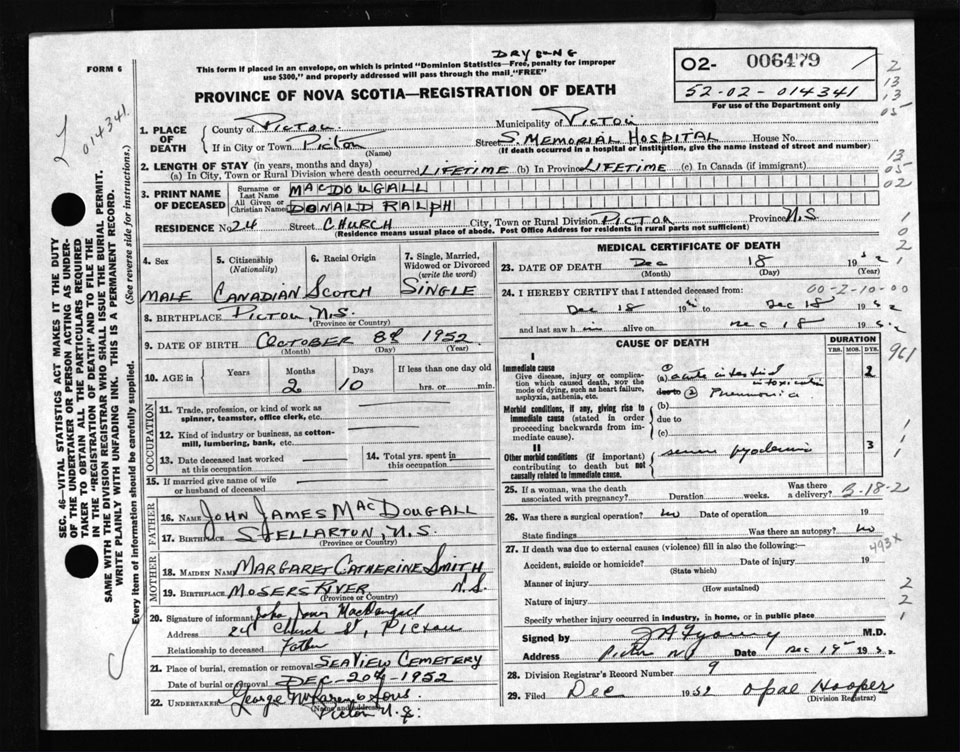 DRYOUNG
FORM 6
This form if placed in an envelope, on which is printed "Dominion Statistics—Free, penalty for improper use $300," and properly addressed will pass through the mail "FREE"
PROVINCE OF NOVA SCOTIA—REGISTRATION OF DEATH
02- 006479
52-02-014341
For use of the Department only
014341
2
13
13
05
13
05
02
1. PLACE OF DEATH
County of PICTOU Municipality of PICTOU
If in City or Town PICTOU (Name) Street S. MEMORIAL HOSPITAL House No.
(If death occurred in a hospital or institution, give the name instead of street and number)
2. LENGTH OF STAY (in years, months and days)
(a) In City, Town or Rural Division where death occurred LIFETIME (b) In Province LIFETIME (c) In Canada (if immigrant)
3. PRINT NAME OF DECEASED
Surname or Last Name MACDOUGALL
All Given or Christian Names DONALD RALPH
RESIDENCE No. 24 Street CHURCH City, Town or Rural Division PICTOU Province N.S.
(Residence means usual place of abode. Post Office Address for residents in rural parts not sufficient)
4. Sex MALE
5. Citizenship (Nationality) CANADIAN
6. Racial Origin SCOTCH
7. Single, Married, Widowed or Divorced (write the word) SINGLE
8. BIRTHPLACE PICTOU, N.S.
(Province or Country)
9. DATE OF BIRTH OCTOBER 8th 1952
(Month) (Day) (Year)
10. AGE in Years Months 2 Days 10 If less than one day old hrs. or min.
OCCUPATION
11. Trade, profession, or kind of work as spinner, teamster, office clerk, etc.
12. Kind of industry or business, as cotton-mill, lumbering, bank, etc.
13. Date deceased last worked at this occupation
14. Total yrs. spent in this occupation
15. If married give name of wife or husband of deceased
FATHER
16. NAME JOHN JAMES MACDOUGALL
17. BIRTHPLACE STELLARTON, N.S.
(Province or Country)
MOTHER
18. MAIDEN NAME MARGARET CATHERINE SMITH
19. BIRTHPLACE MOSERS RIVER N.S.
(Province or Country)
20. Signature of informant John James MacDougall
Address 24 Church St, Pictou
Relationship to deceased Father
21. Place of burial, cremation or removal SEAVIEW CEMETERY
Date of burial or removal DEC-20th-1952
22. UNDERTAKER George & Sons
(Name and address)
Pictou N.S.
MEDICAL CERTIFICATE OF DEATH
23. DATE OF DEATH Dec 18 1952
(Month) (Day) (Year)
24. I HEREBY CERTIFY that I attended deceased from: 00-2-10-00
Dec 18 1952 to Dec 18 1952
and last saw him alive on Dec 18 1952
CAUSE OF DEATH
DURATION
YRS. MOS. DYS.
I
Immediate cause
Give disease, injury or complication which caused death, not the mode of dying, such as heart failure, asphyxia, asthenia, etc.
(a) Acute intestinal intoxication 2
due to (2) Pneumonia
Morbid conditions, if any, giving rise to immediate cause (stated in order proceeding backwards from immediate cause)
(b)
due to
(c)
II
Other morbid conditions (if important) contributing to death but not causally related to immediate cause.
severe pyodermia 3
961
25. If a woman, was the death associated with pregnancy? Duration weeks. Was there a delivery? B-18-2
26. Was there a surgical operation? no Date of operation 19
State findings Was there an autopsy? no
493X
27. If death was due to external causes (violence) fill in also the following:—
Accident, suicide or homicide? Date of injury 19
(State which)
Manner of injury
(How sustained)
Nature of injury
Specify whether injury occurred in industry, in home, or in public place
Signed by M.D.
Address Pictou NS Date Dec 19 1952
28. Division Registrar's Record Number 9
29. Filed Dec 1952 Opal Hooper
(Division Registrar)
SEC. 46—VITAL STATISTICS ACT MAKES IT THE DUTY OF THE UNDERTAKER OR PERSON ACTING AS UNDERTAKER TO OBTAIN ALL THE PARTICULARS REQUIRED IN THE "REGISTRATION OF DEATH" AND TO FILE THE SAME WITH THE DIVISION REGISTRAR WHO SHALL ISSUE THE BURIAL PERMIT.
WRITE PLAINLY WITH UNFADING INK. THIS IS A PERMANENT RECORD.
Every item of information should be carefully supplied. (See reverse side for instructions.)